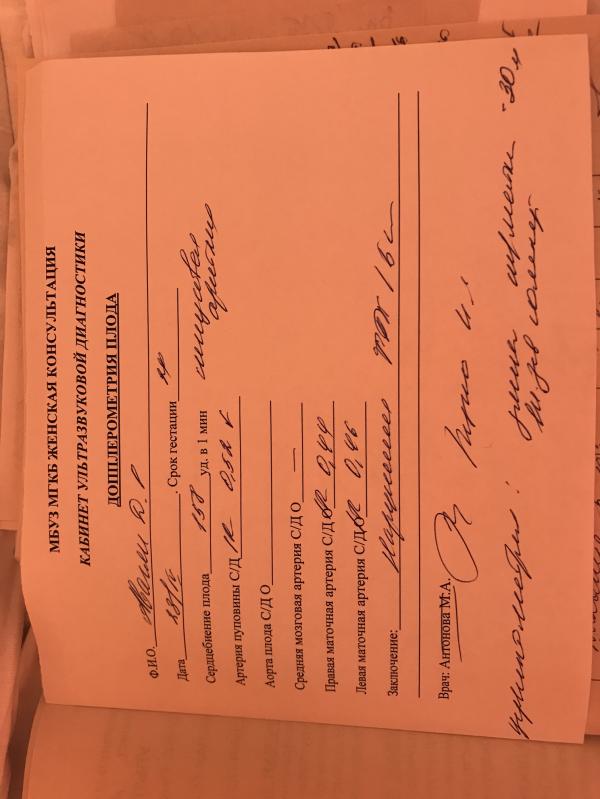 МБУЗ МГКБ ЖЕНСКАЯ КОНСУЛЬТАЦИЯ
КАБИНЕТ УЛЬТРАЗВУКОВОЙ ДИАГНОСТИКИ
ДОППЛЕРОМЕТРИЯ ПЛОДА
Ф.И.О.
Дата 18/10 . Срок гестации
Сердцебиение плода 158 уд. в 1 мин
Артерия пуповины С/Д IR 0,52
Аорта плода С/Д О
Средняя мозговая артерия С/Д О —
Правая маточная артерия С/Д IR 0,44
Левая маточная артерия С/Д IR 0,46
Заключение: Нарушение МПК 1б ст
Врач: Антонова М.А.
цервикометрия: длина шейки - 30 мм